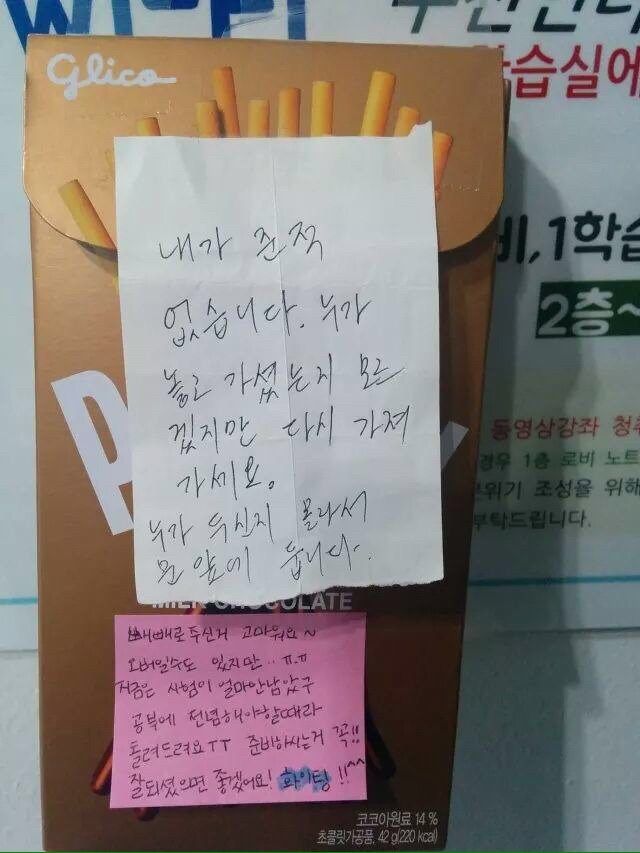 Glico
습실에
내가 준적
없습니다. 누가
놓고 가셨는지 모르
겠지만 다시 가져
가세요.
누가 두신지 몰라서
문 앞에 둡니다.
비,1학습
2층~
동영상강좌 청취
경우 1층 로비 노트
분위기 조성을 위해
부탁드립니다.
CHOCOLATE
빼빼로 두신거 고마워요~
오버일수도 있지만..ㅠ.ㅠ
지금은 시험이 얼마안남았구
공부에 전념해야할때라
돌려드려요TT 준비하시는거 꼭!!
잘되셨으면 좋겠어요! 화이팅!!^^
코코아원료 14%
초콜릿가공품, 42 g(220 kcal)